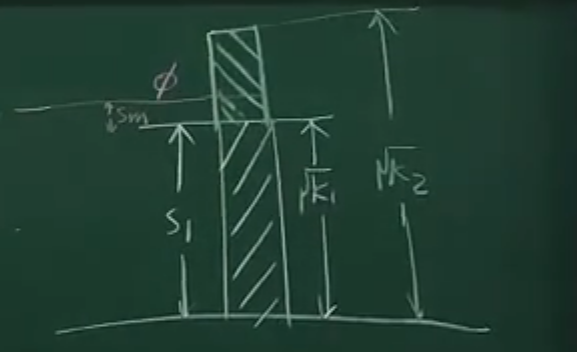 ϕ
Sm
S₁
μK₁
μK₂